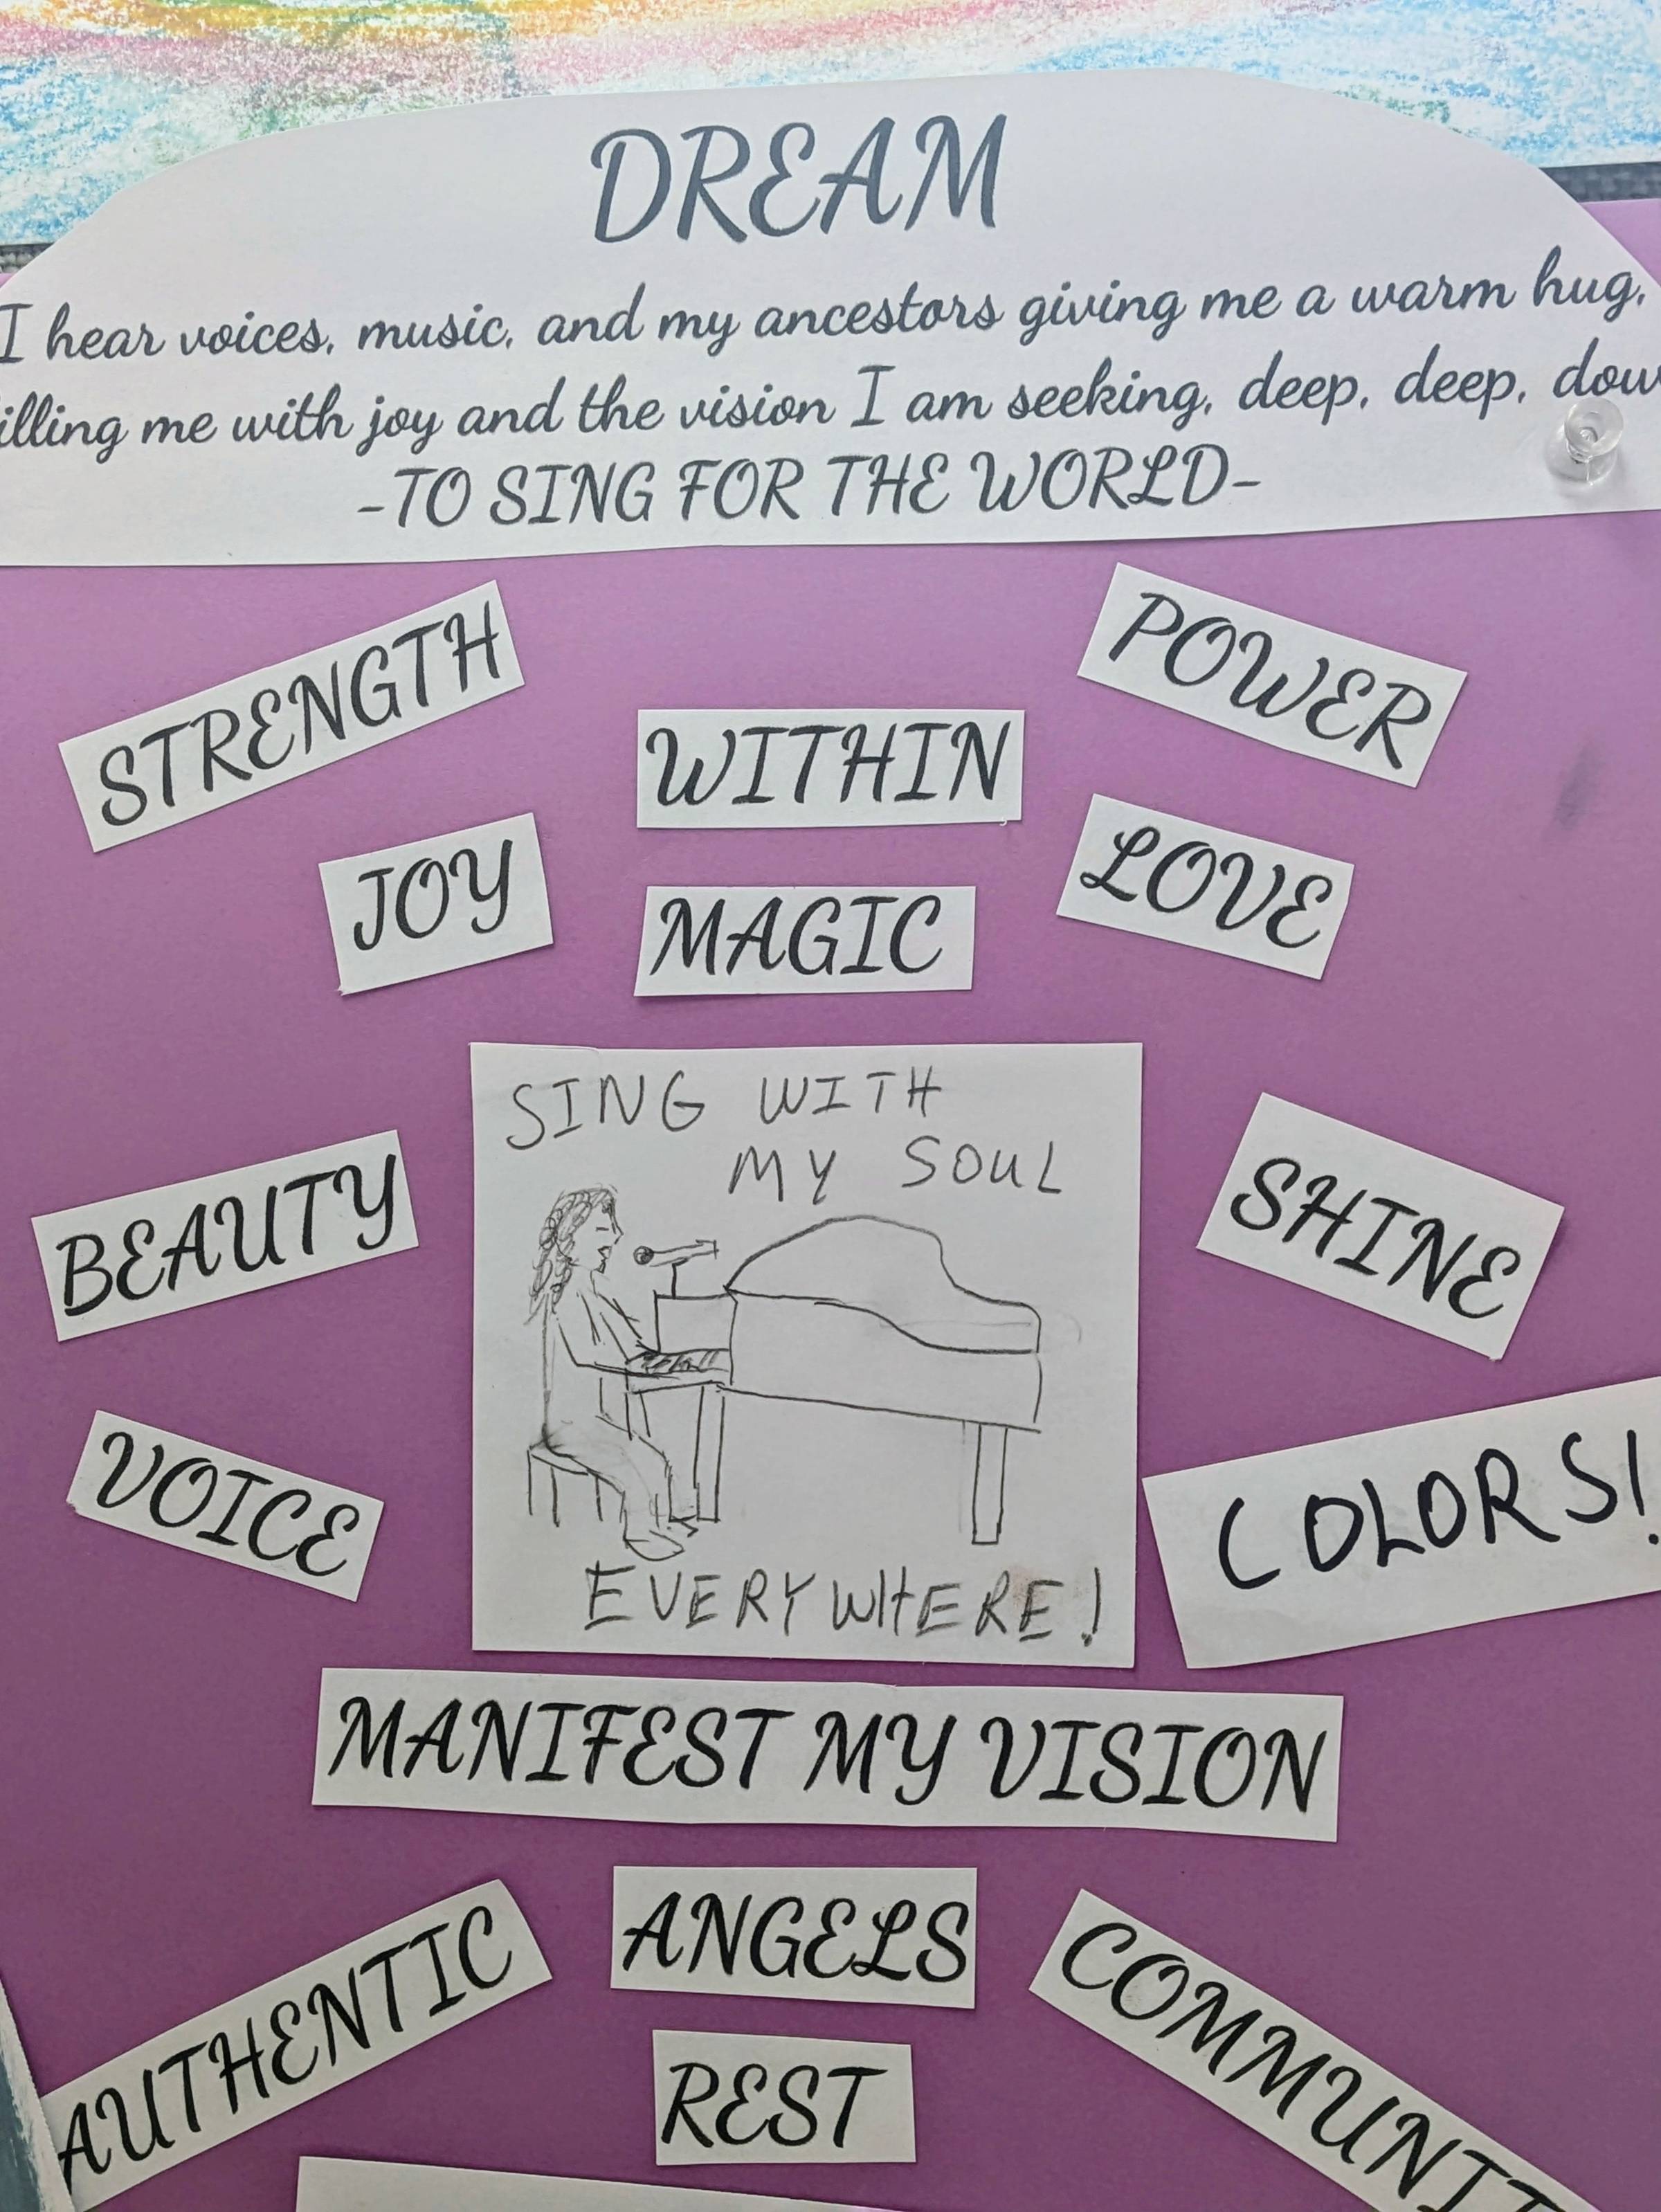 DREAM
I hear voices, music, and my ancestors giving me a warm hug,
illing me with joy and the vision I am seeking, deep, deep, dow
-TO SING FOR THE WORLD-
STRENGTH
POWER
WITHIN
JOY
LOVE
MAGIC
SING WITH
MY SOUL
BEAUTY
SHINE
VOICE
COLORS!
EVERYWHERE!
MANIFEST MY VISION
AUTHENTIC
ANGELS
COMMUNIT
REST